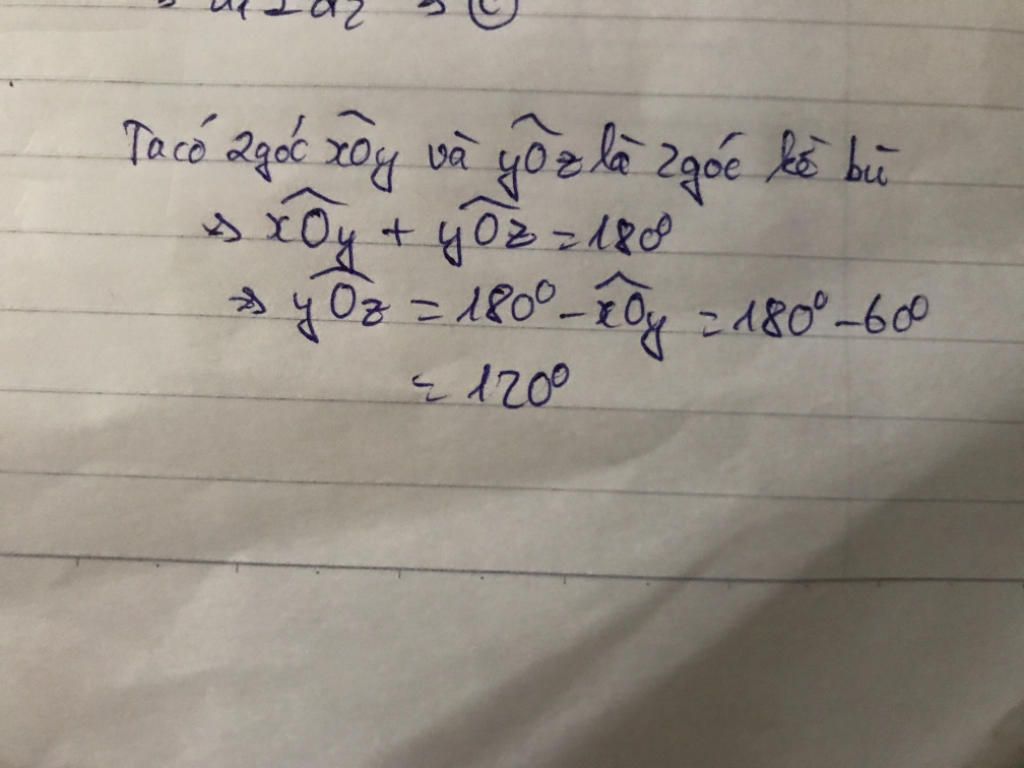 Ta có 2 góc xOy và yOz là 2 góc kề bù
=> xOy + yOz = 180⁰
=> yOz = 180⁰ - xOy = 180⁰ - 60⁰
= 120⁰